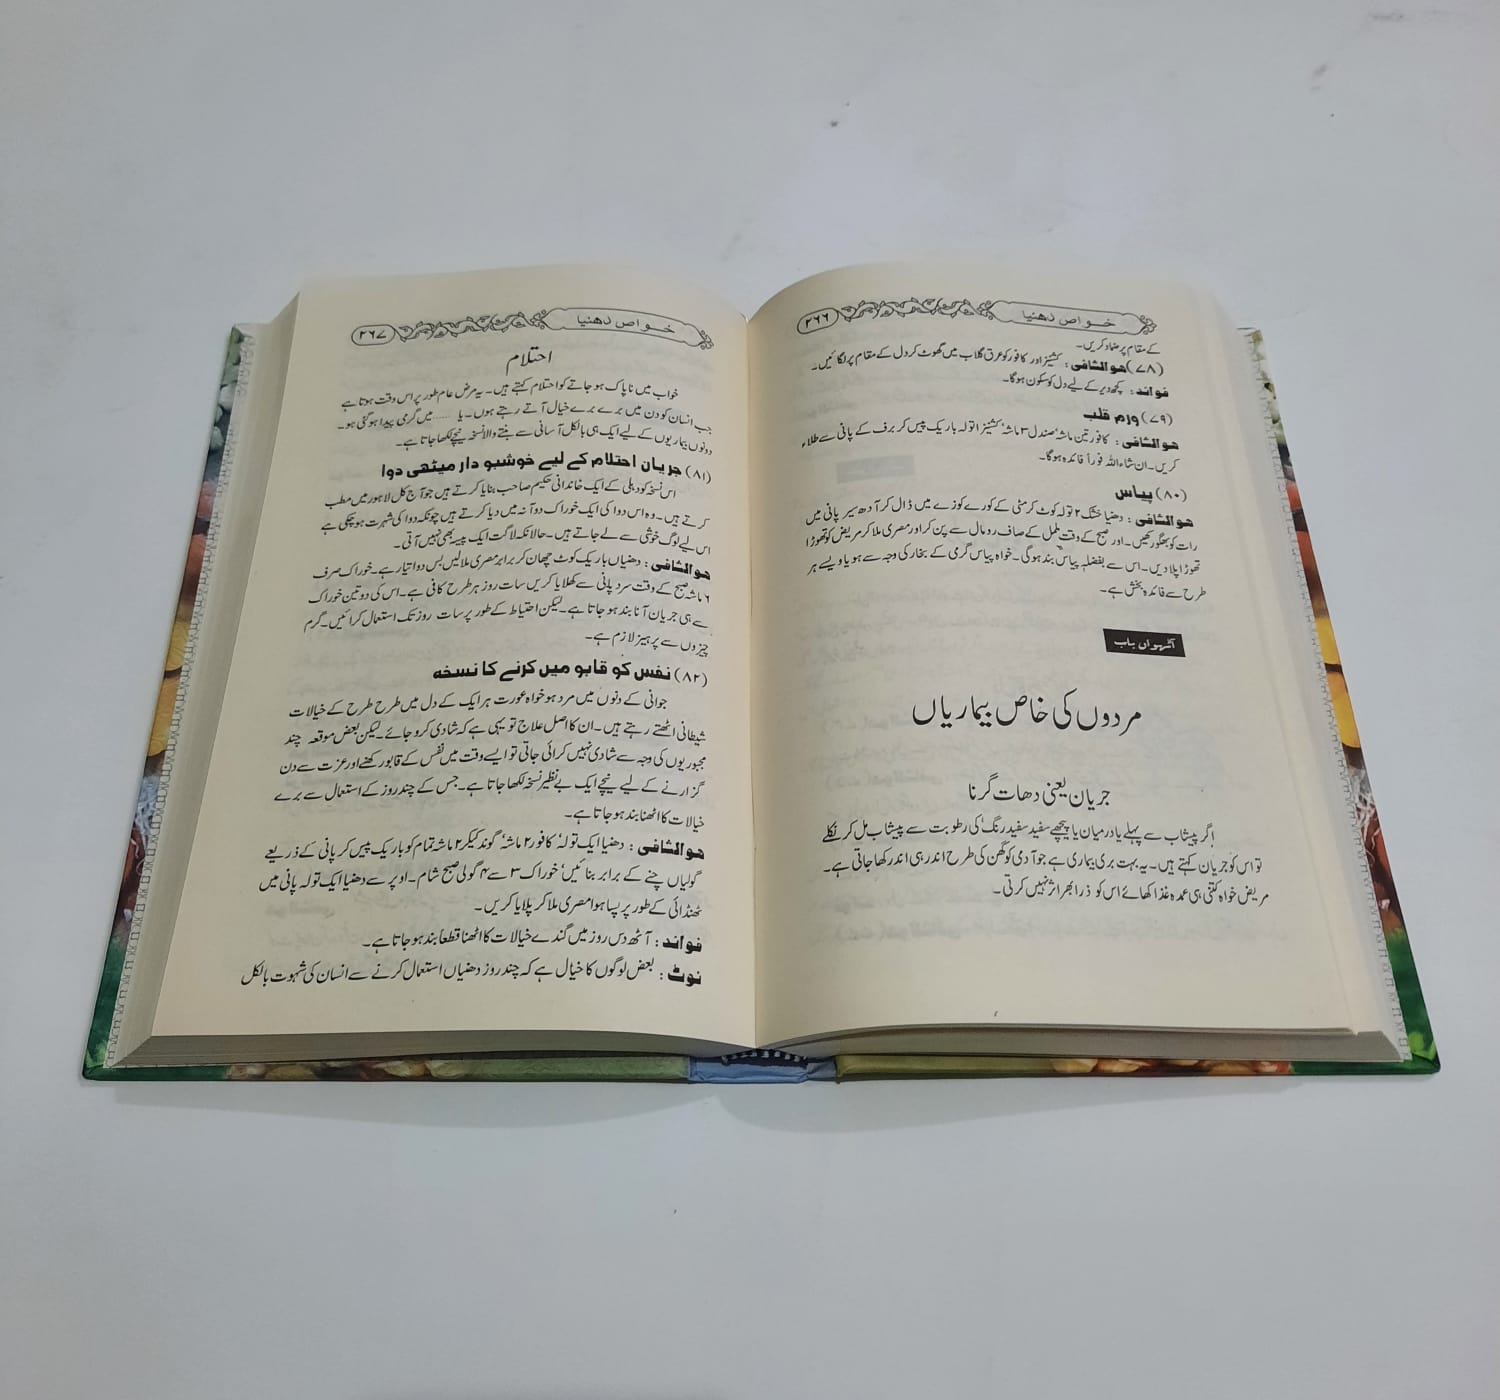 خواص دھنیا ۲۶۶
کے مقام پر ضماد کریں۔
(۷۸) ھوالشافی: کشنیز اور کافور کو عرق گلاب میں گھوٹ کر دل کے مقام پر لگائیں۔
فوائد: کچھ دیر کے لیے دل کو سکون ہوگا۔
(۷۹) ورم قلب
ھوالشافی: کافور تین ماشہ، صندل ۳ ماشہ، کشنیز ا تولہ باریک پیس کر برف کے پانی سے طلاء
کریں۔ ان شاءاللہ فوراً فائدہ ہوگا۔
(۸۰) پیاس
ھوالشافی: دھنیا خشک ۲ تولہ کوٹ کر مٹی کے کورے کوزے میں ڈال کر آدھ سیر پانی میں
رات کو بھگو رکھیں۔ اور صبح کے وقت ململ کے صاف رومال سے پن کر اور مصری ملا کر مریض کو تھوڑا
تھوڑا پلا دیں۔ اس سے بفضلہٖ پیاس بند ہوگی۔ خواہ پیاس گرمی کے بخار کی وجہ سے ہو یا ویسے ہر
طرح سے فائدہ بخش ہے۔
آٹھواں باب
مردوں کی خاص بیماریاں
جریان یعنی دھات گرنا
اگر پیشاب سے پہلے یا درمیان یا پیچھے سفید سفید رنگ کی رطوبت سے پیشاب مل کر نکلے
تو اس کو جریان کہتے ہیں۔ یہ بہت بری بیماری ہے جو آدمی کو گھن کی طرح اندر ہی اندر کھا جاتی ہے۔
مریض خواہ کتنی ہی عمدہ غذا کھائے اس کو ذرا بھر اثر نہیں کرتی۔
خواص دھنیا ۲۶۷
احتلام
خواب میں ناپاک ہو جانے کو احتلام کہتے ہیں۔ یہ مرض عام طور پر اس وقت ہوتا ہے
جب انسان کو دن میں برے برے خیال آتے رہتے ہوں۔ یا ...... میں گرمی پیدا ہو گئی ہو۔
دونوں بیماریوں کے لیے ایک ہی بالکل آسانی سے بننے والا نسخہ نیچے لکھا جاتا ہے۔
(۸۱) جریان احتلام کے لیے خوشبو دار میٹھی دوا
اس نسخہ کو دہلی کے ایک خاندانی حکیم صاحب بنایا کرتے ہیں جو آج کل لاہور میں مطب
کرتے ہیں۔ وہ اس دوا کی ایک خوراک دو آنہ میں دیا کرتے ہیں چونکہ دوا کی شہرت ہو چکی ہے
اس لیے لوگ خوشی سے لے جاتے ہیں۔ حالانکہ لاگت ایک پیسہ بھی نہیں آتی۔
ھوالشافی: دھنیاں باریک کوٹ چھان کر برابر مصری ملا لیں بس دوا تیار ہے۔ خوراک صرف
۶ ماشہ صبح کے وقت سرد پانی سے کھلایا کریں سات روز ہر طرح کافی ہے۔ اس کی دو تین خوراک
سے ہی جریان آنا بند ہو جاتا ہے۔ لیکن احتیاط کے طور پر سات روز تک استعمال کرائیں۔ گرم
چیزوں سے پرہیز لازم ہے۔
(۸۲) نفس کو قابو میں کرنے کا نسخہ
جوانی کے دنوں میں مرد ہو خواہ عورت ہر ایک کے دل میں طرح طرح کے خیالات
شیطانی اٹھتے رہتے ہیں۔ ان کا اصل علاج تو یہی ہے کہ شادی کرو جائے۔ لیکن بعض موقعہ چند
مجبوریوں کی وجہ سے شادی نہیں کرائی جاتی تو ایسے وقت میں نفس کے قابو رکھنے اور عزت سے دن
گزارنے کے لیے نیچے ایک بے نظیر نسخہ لکھا جاتا ہے۔ جس کے چند روز کے استعمال سے برے
خیالات کا اٹھنا بند ہو جاتا ہے۔
ھوالشافی: دھنیا ایک تولہ، کافور ۲ ماشہ، گوند کیکر ۲ ماشہ تمام کو باریک پیس کر پانی کے ذریعے
گولیاں چنے کے برابر بنائیں، خوراک ۳ سے ۴ گولی صبح شام۔ اوپر سے دھنیا ایک تولہ پانی میں
ٹھنڈائی کے طور پر پسا ہوا مصری ملا کر پلایا کریں۔
فوائد: آٹھ دس روز میں گندے خیالات کا اٹھنا قطعاً بند ہو جاتا ہے۔
نوٹ: بعض لوگوں کا خیال ہے کہ چند روز دھنیاں استعمال کرنے سے انسان کی شہوت بالکل